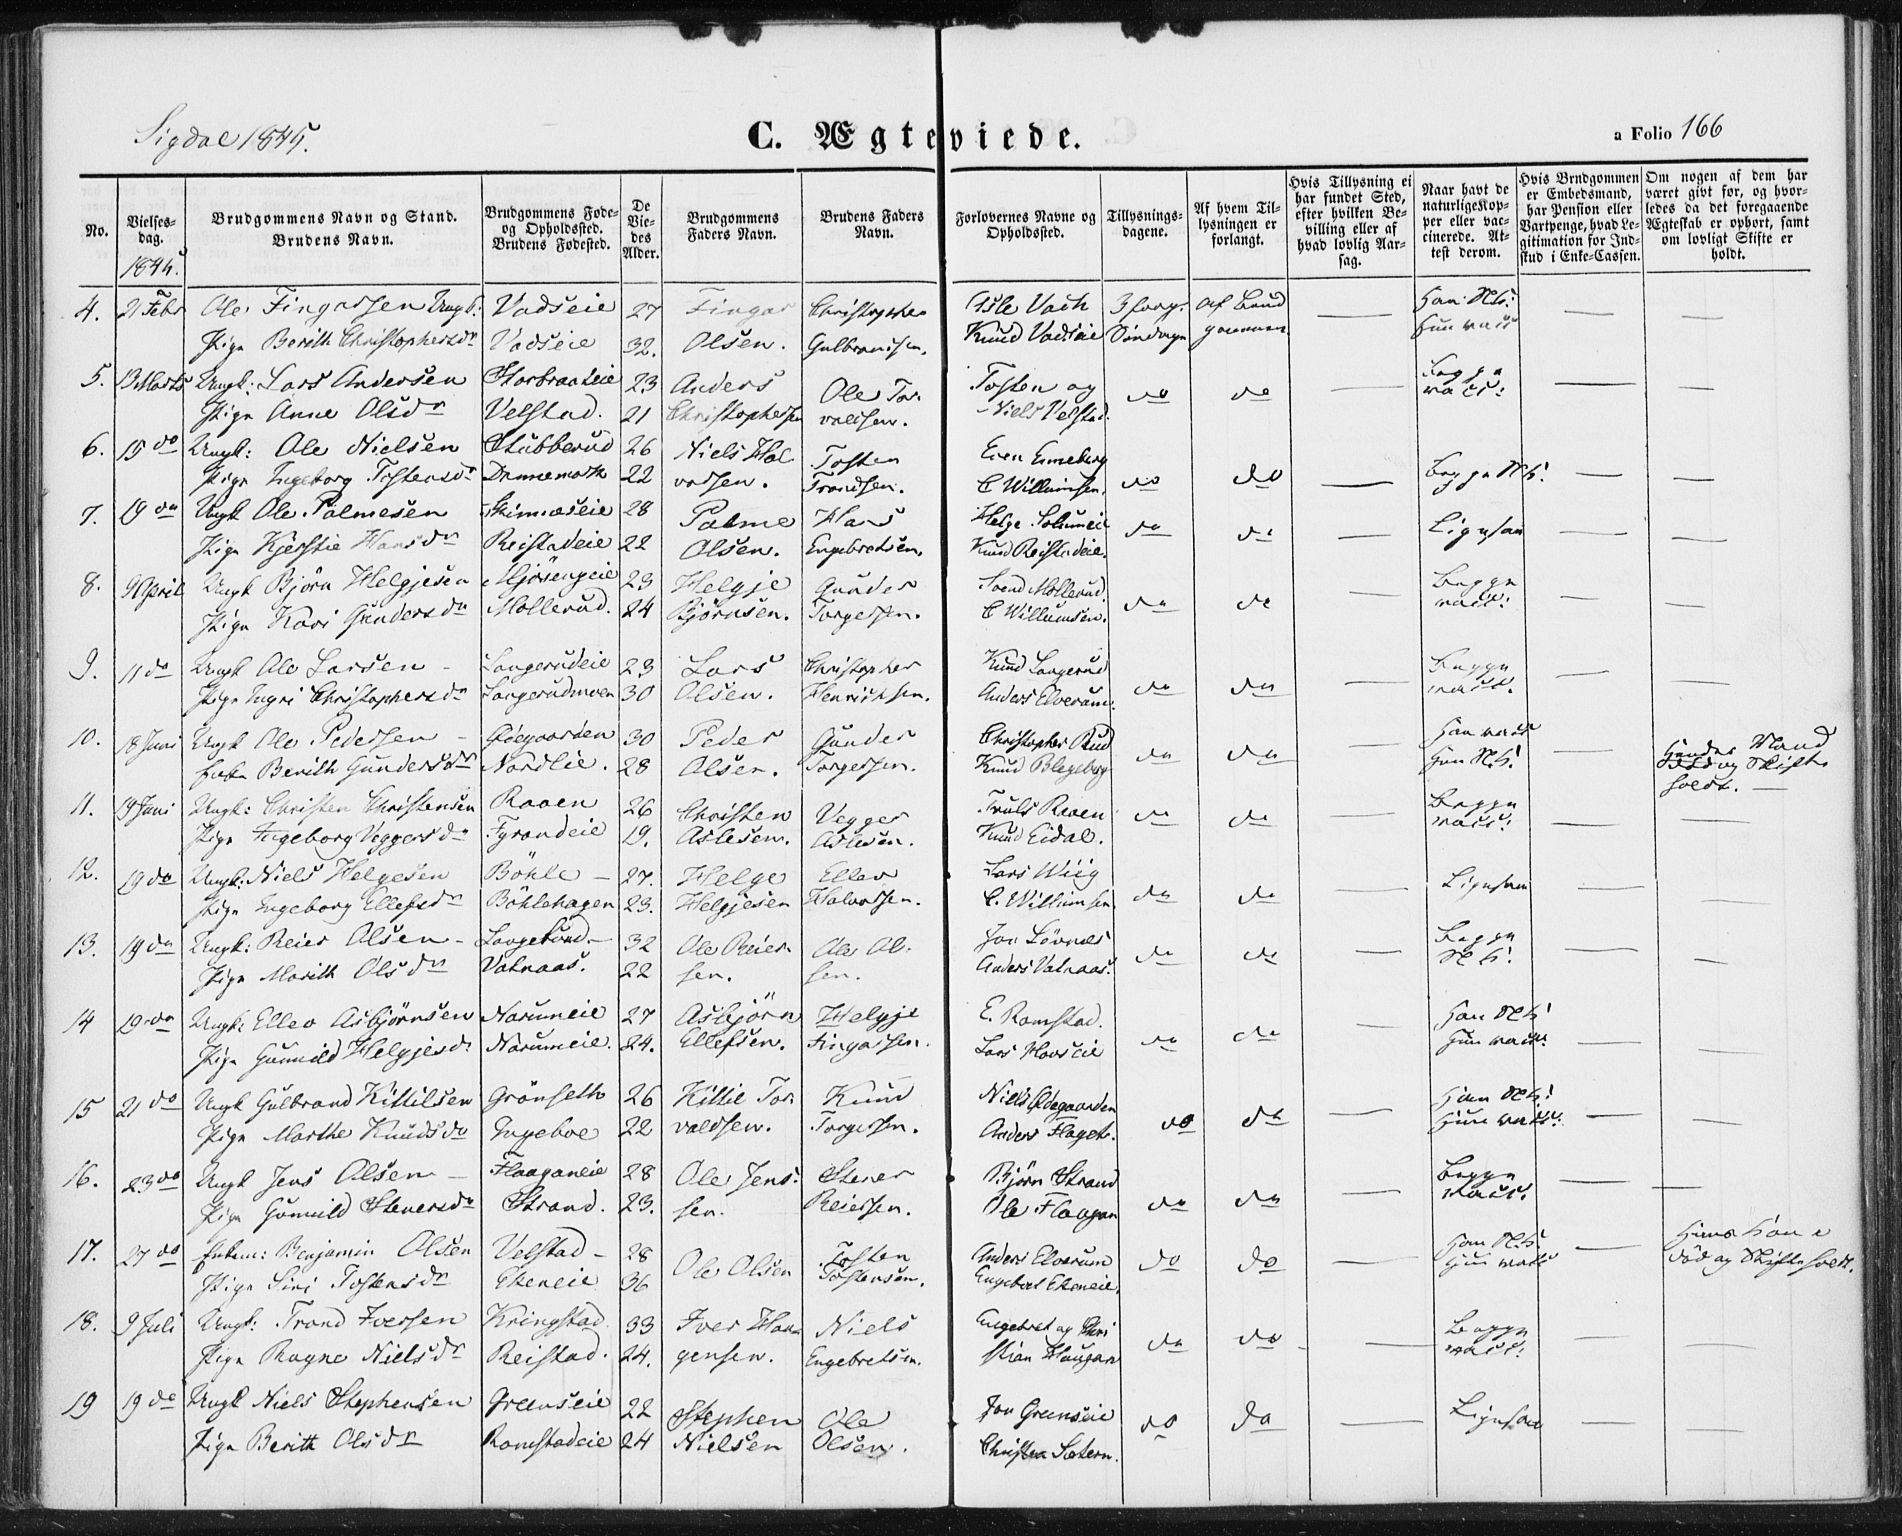 Sigdal 1845.
C. Ægteviede.
a Folio 166
No.
Vielses-dag.
Brudgommens Navn og Stand. Brudens Navn.
Brudgommens Føde- og Opholdssted. Brudens Fødested.
De Vie-des Alder.
Brudgommens Faders Navn.
Brudens Faders Navn.
Forlovernes Navne og Opholdssted.
Tillysnings-dagene.
Af hvem Til-lysningen er forlangt.
Hvis Tillysning ei har fundet Sted, efter hvilken Be-villing eller af hvad lovlig Aar-sag.
Naar havt de naturlige Kop-per eller vac-cinerede. At-test derom.
Hvis Brudgommen er Embedsmand, har Pension eller Vartpenge, hvad Le-gitimation for Ind-skud i Enke-Cassen.
Om nogen af dem har været gift før, og hvor-ledes da det foregaaende Ægteskab er ophørt, samt om lovligt Skifte er holdt.
1845.
4. 21 Febr Ole Fingarsen Ungk: Vadseie 27 Fingar Christopher Asle Vath 3 forg. af Brud Han N.K:
Pige Berith Christophersdr Vadseie 32. Olsen. Gulbrandsen. Knud Vadseie Søndage gommen Hun vacc
5. 13 Marts Ungk: Lars Andersen Storbraateie 23 Anders Ole Tor Tosten og do do Begge
Pige Anne Olsdr Velstad. 21 Christophersen valdsen. Niels Velstad. vacc:
6. 15 do Ungk: Ole Nielsen Stubberud 26 Niels Hal Tosten Even Enneberg do do Begge N.K:
Pige Ingeborg Tostensdr Dannemark 22 vorsen. Trondsen. C Willumsen.
7. 19 do Ungk Ole Palmesen Skimnæseie 28 Palme Hans Helge Solumeie do do Ligesaa
Pige Kjerstie Hansdr Reistadeie 22 Olsen. Engebretsen. Knud Reistadeie.
8. 9 April Ungk Bjørn Helgjesen Mjøsengeie 23 Helgje Gunder Svend Møllerud. do do Begge
Pige Kari Gundersdr Møllerud. 24 Bjørnsen. Torgersen. C Willumsen. vacc:
9. 11 do Ungk Ole Larsen Langerudeie 23 Lars Christopher Knud Langerud do do Begge
Pige Ingri Christophersdr Langerudmoen 30 Olsen. Henriksen. Anders Elverum. vacc.
10. 18 Juni Ungk Ole Pedersen Ødegaarden 30 Peder Gunder Christopher Rud do do Han vacc Hendes Mand
Enke Berith Gundersdr Nordlie. 28 Olsen. Torgersen. Knud Blegeberg Hun N.K: død og Skifte
holdt.
11. 19 Juni Ungk: Christen Christensen Raaen 26 Christen Vegger Truls Raaen do do Begge
Pige Ingeborg Veggersdr Fyrandeie 19. Aslesen. Aslesen. Knud Eidal. vacc:
12. 19 do Ungk: Niels Helgesen Bøhle 27. Helge Ellev Lars Wiig do do Ligesaa
Pige Ingeborg Ellefsdr Bøhlehagen 23. Helgjesen Halvorsen. C. Willumsen.
13. 19 do Ungk: Reier Olsen Langelund 32 Ole Reier Ole Ol- Jon Løvnæs do do Begge
Pige Marith Olsdr Vatnaas. 22 sen. sen. Anders Vatnaas. N.K:
14 19 do Ungk: Ellev Asbjørnsen Narumeie 27 Asbjørn Helgje E. Ramstad. do do Han N.K:
Pige Gunnild Helgjesdr Narumeie. 24. Ellefsen. Fingarsen. Lars Hovseie Hun vacc:
15 21 do Ungk Gulbrand Kittilsen Grønseth 26 Kittil Tor Knud Niels Ødegaarden do do Han N.K:
Pige Marthe Knudsdr Ingeboe 22 valdsen. Torgersen. Anders Flaget. Hun vacc:
16. 23 do Ungk Jens Olsen Flaaganeie 28 Ole Jens: Stener Bjørn Strand do do Begge
Pige Gunnild Stenersdr Strand. 23. sen. Reiersen. Ole Flaagan vacc:
17. 27 do Enkem: Benjamin Olsen Velstad 28 Ole Olsen Tosten Anders Elverum do do Han N.K: Hans Kone
Pige Siri Tostensdr Ekeneie 36 Tostensen. Engebret Ekeneie. Hun vacc død og Skifte holdt.
18. 9 Juli Ungk: Trond Iversen Kringstad 33 Iver Haa Niels Engebret og Chri do do Begge
Pige Ragne Nielsdr Reistad. 24. gensen. Engebretsen. stian Haugan vacc:
19 19 do Ungk Niels Stephensen Greenseie 22 Stephen Ole Jon Greenseie do do Ligesaa
Pige Berith Olsdr Ramstadeie 24 Nielsen Olsen. Christen Sætern.